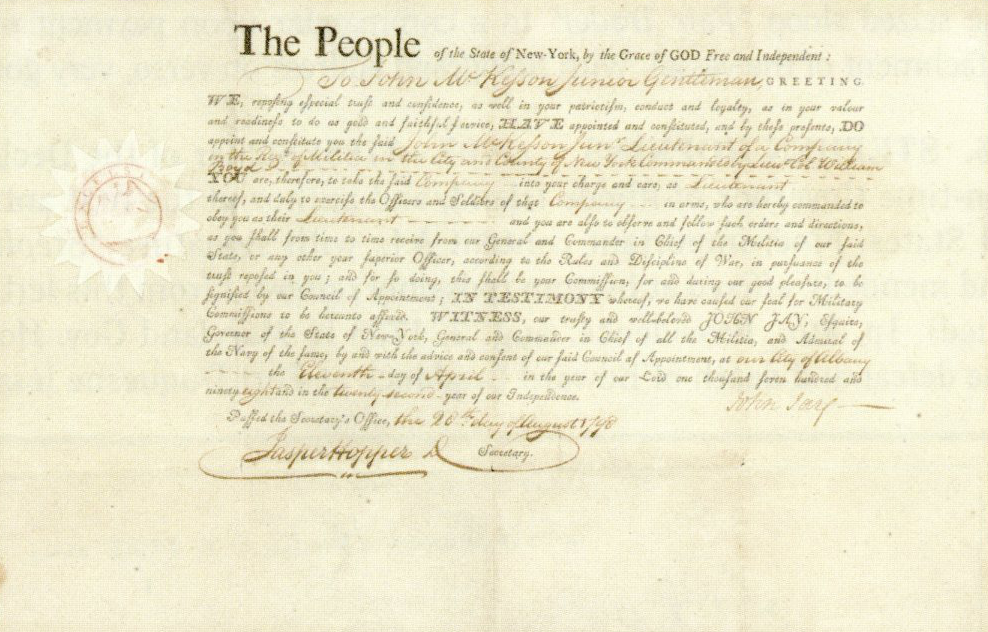 The People of the State of New-York, by the Grace of GOD Free and Independent:
To John McKesson Junior Gentleman, GREETING.
WE, reposing especial trust and confidence, as well in your patriotism, conduct and loyalty, as in your valour
and readiness to do us good and faithful service, HAVE appointed and constituted, and by these presents, DO
appoint and constitute you the said John McKesson Junr. Lieutenant of a Company
in the Regt. of Militia in the City and County of New York Commanded by Lieut Col William
YOU are, therefore, to take the said Company into your charge and care, as Lieutenant
thereof, and duly to exercise the Officers and Soldiers of that Company in arms, who are hereby commanded to
obey you as their Lieutenant and you are also to observe and follow such orders and directions,
as you shall from time to time receive from our General and Commander in Chief of the Militia of our said
State, or any other your superior Officer, according to the Rules and Discipline of War, in pursuance of the
trust reposed in you; and for so doing, this shall be your Commission, for and during our good pleasure, to be
signified by our Council of Appointment; IN TESTIMONY whereof, we have caused our seal for Military
Commissions to be hereunto affixed. WITNESS, our trusty and well-beloved JOHN JAY, Esquire,
Governor of the State of New-York, General and Commander in Chief of all the Militia, and Admiral of
the Navy of the same, by and with the advice and consent of our said Council of Appointment, at our City of Albany
the Eleventh day of April in the year of our Lord one thousand seven hundred and
ninety eight and in the twenty second year of our Independence.
John Jay
Passed the Secretary's Office, the 20th day of August 1798
Jasper Hopper D Secretary.